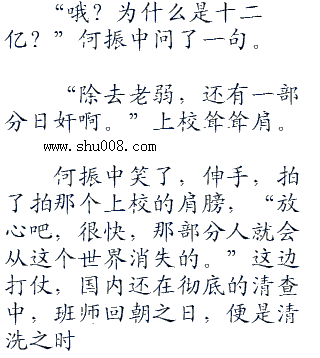 “哦？为什么是十二
亿？”何振中问了一句。
“除去老弱，还有一部
分日奸啊。”上校耸耸肩。
www.shu008.com
何振中笑了，伸手，拍
了拍那个上校的肩膀，“放
心吧，很快，那部分人就会
从这个世界消失的。”这边
打仗，国内还在彻底的清查
中，班师回朝之日，便是清
洗之时